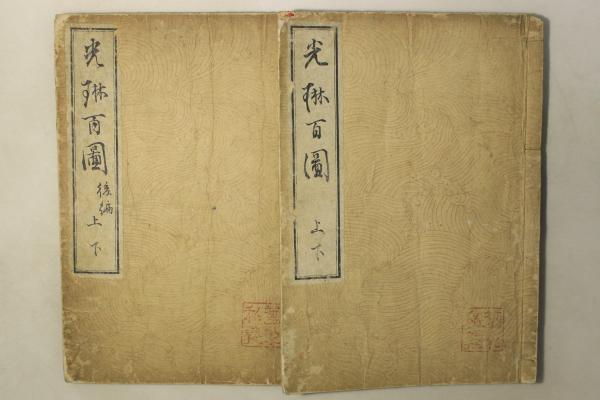 光琳百圖
上下
光琳百圖
後編
上下